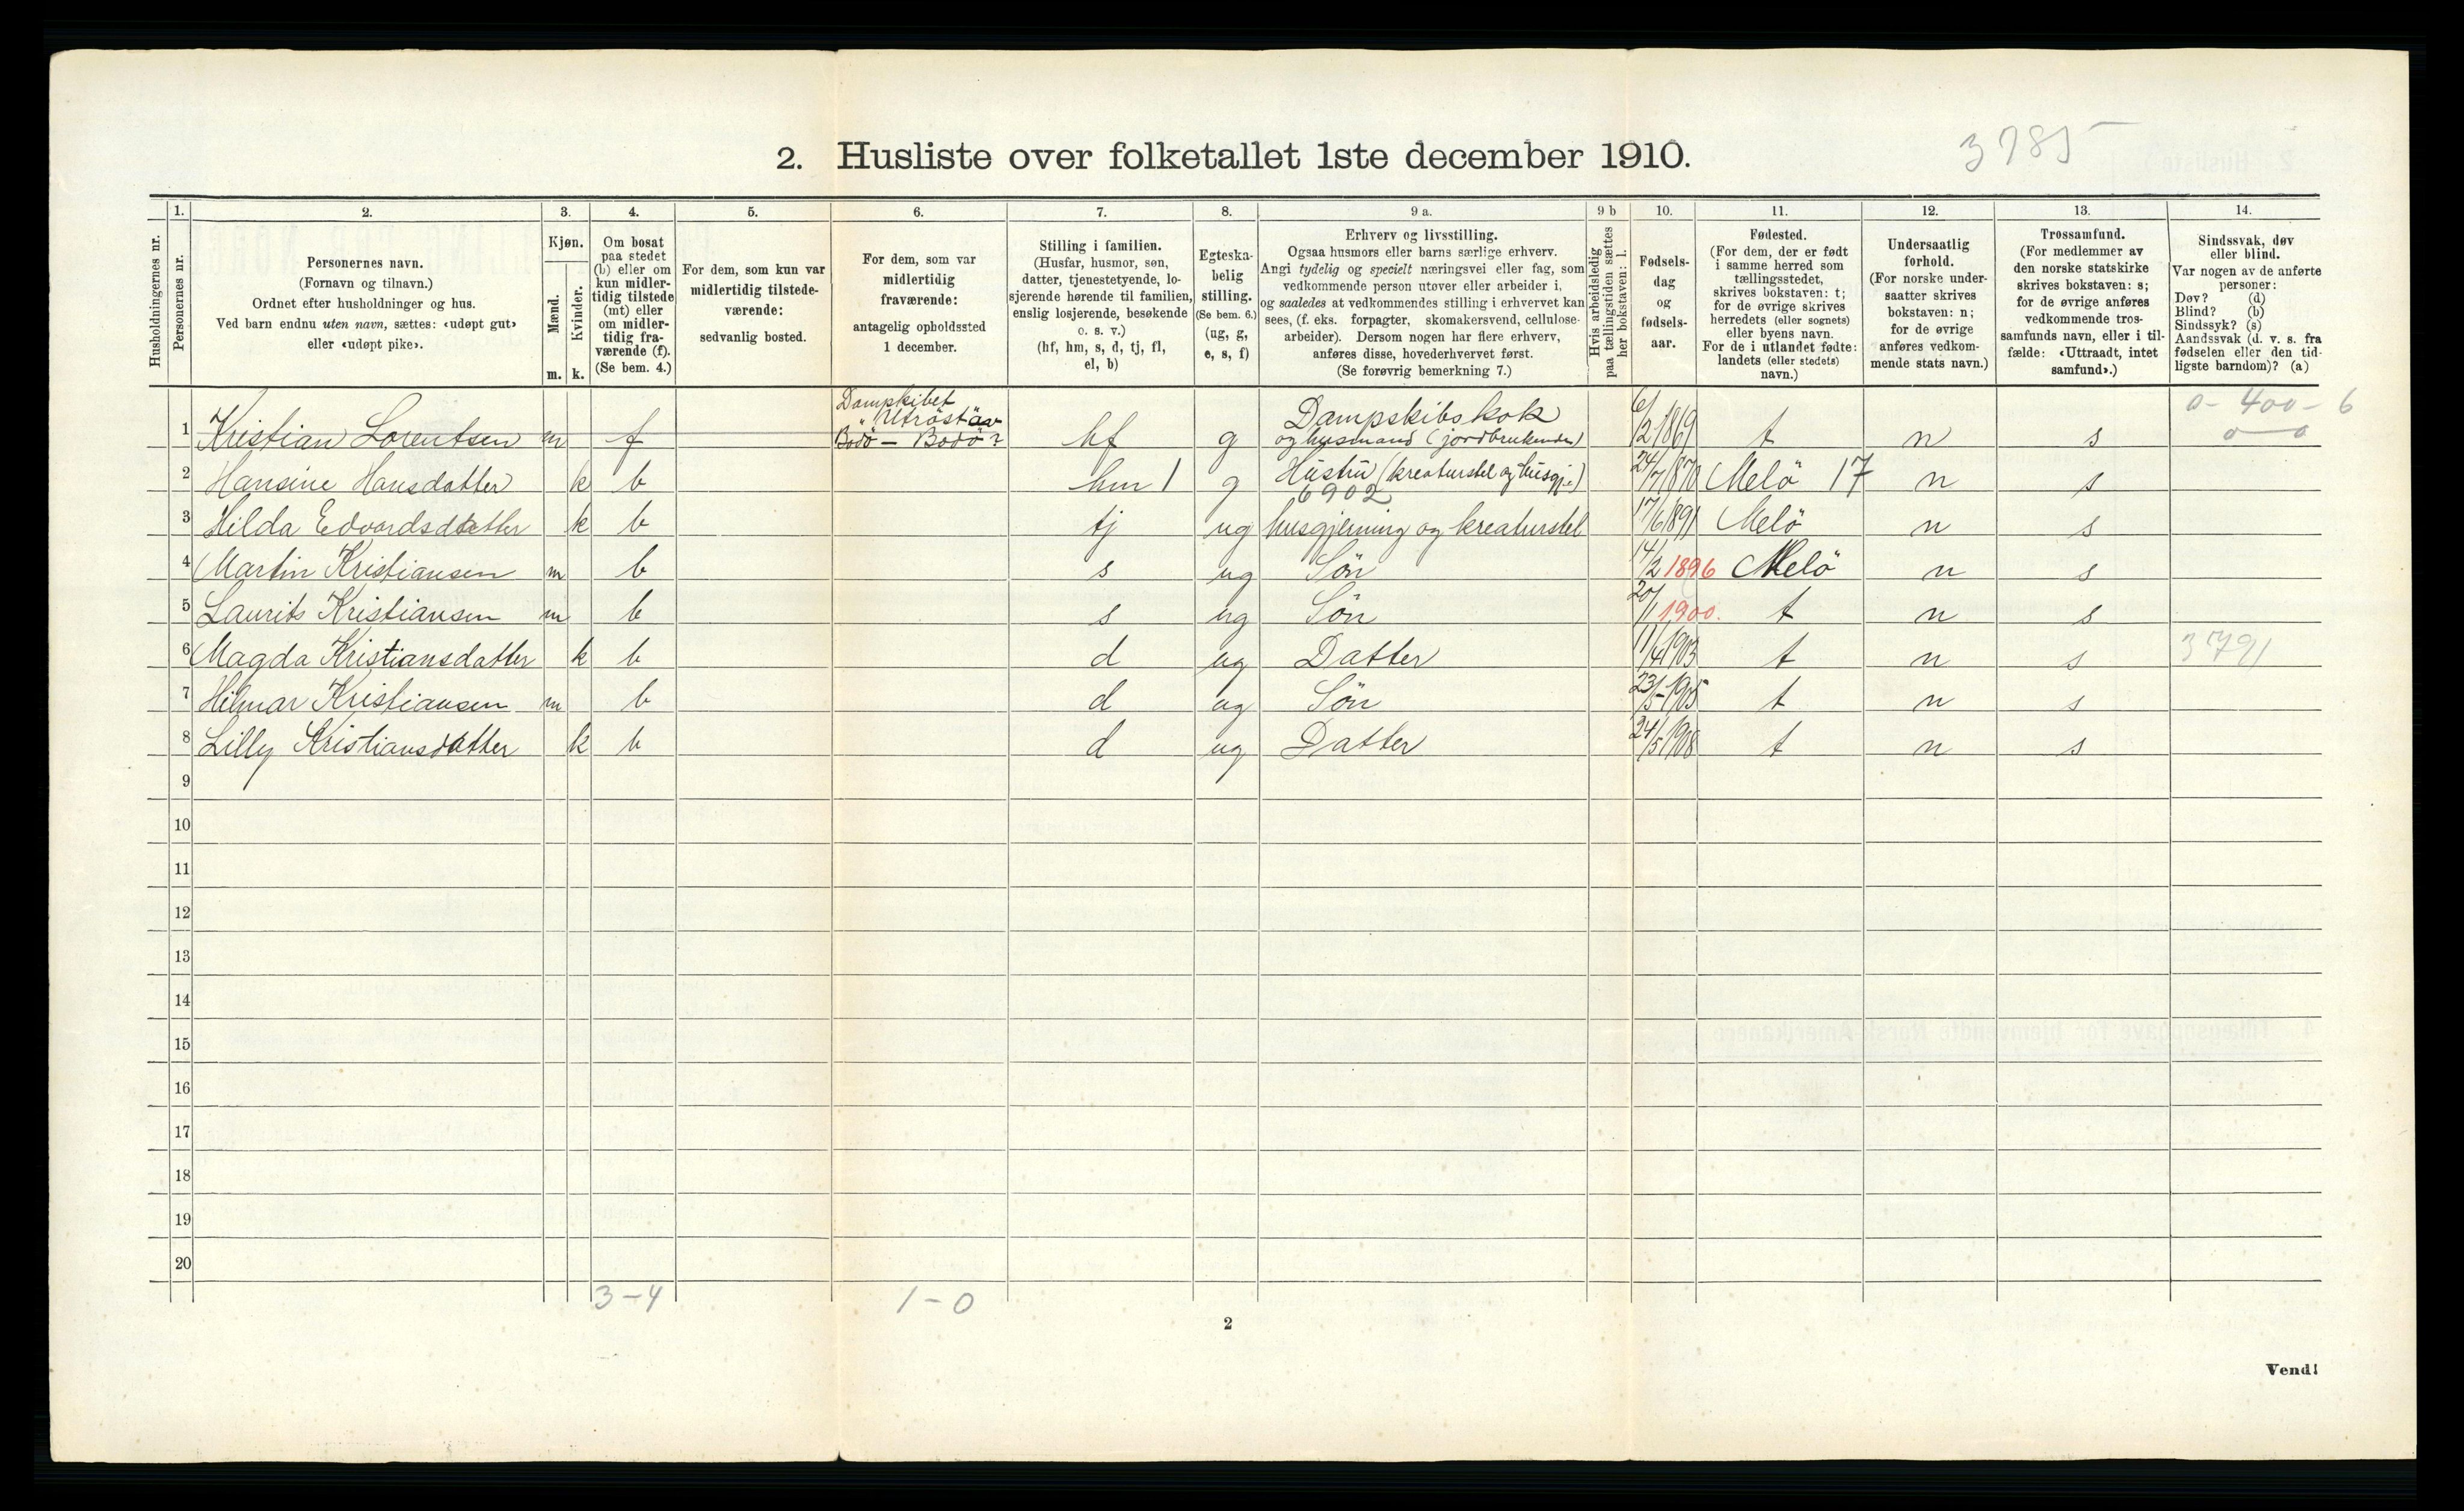 3785
2. Husliste over folketallet 1ste december 1910.
Husholdningernes nr.
1.
Personernes nr.
2.
Personernes navn.
(Fornavn og tilnavn.)
Ordnet efter husholdninger og hus.
Ved barn endnu uten navn, sættes: «udøpt gut»
eller «udøpt pike».
3.
Kjøn.
Mænd.
Kvinder.
m. k.
4.
Om bosat
paa stedet
(b) eller om
kun midler-
tidig tilstede
(mt) eller
om midler-
tidig fra-
værende (f).
(Se bem. 4.)
5.
For dem, som kun var
midlertidig tilstede-
værende:
sedvanlig bosted.
6.
For dem, som var
midlertidig
fraværende:
antagelig opholdssted
1 december.
7.
Stilling i familien.
(Husfar, husmor, søn,
datter, tjenestetyende, lo-
sjerende hørende til familien,
enslig losjerende, besøkende
o. s. v.)
(hf, hm, s, d, tj, fl,
el, b)
8.
Egteska-
belig
stilling.
(Se bem. 6.)
(ug, g,
e, s, f)
9 a.
Erhverv og livsstilling.
Ogsaa husmors eller barns særlige erhverv.
Angi tydelig og specielt næringsvei eller fag, som
vedkommende person utøver eller arbeider i,
og saaledes at vedkommendes stilling i erhvervet kan
sees, (f. eks. forpagter, skomakersvend, cellulose-
arbeider). Dersom nogen har flere erhverv,
anføres disse, hovederhvervet først.
(Se forøvrig bemerkning 7.)
9 b
Hvis arbeidsledig
paa tællingstiden sættes
her bokstaven: l.
10.
Fødsels-
dag
og
fødsels-
aar.
11.
Fødested.
(For dem, der er født
i samme herred som
tællingsstedet,
skrives bokstaven: t;
for de øvrige skrives
herredets (eller sognets)
eller byens navn.
For de i utlandet fødte:
landets (eller stedets)
navn.)
12.
Undersaatlig
forhold.
(For norske under-
saatter skrives
bokstaven: n;
for de øvrige
anføres vedkom-
mende stats navn.)
13.
Trossamfund.
(For medlemmer av
den norske statskirke
skrives bokstaven: s;
for de øvrige anføres
vedkommende tros-
samfunds navn, eller i til-
fælde: «Uttraadt, intet
samfund».)
14.
Sindssvak, døv
eller blind.
Var nogen av de anførte
personer:
Døv? (d)
Blind? (b)
Sindssyk? (s)
Aandssvak (d. v. s. fra
fødselen eller den tid-
ligste barndom)? (a)
0 - 400 - 6
0 — 0
1 Kristian Lorentsen m f Dampskibet "Utröst" av Bodö — Bodö? hf g Dampskibskok og husmand (jordbrukende) 6/2 1869 t n s
2 Hansine Hansdatter k b hm 1 g Hustru (kreaturstel og husgj.) 24/7 1870 Melö 17 n s
6902
3 Hilda Edvardsdatter k b tj ug husgjerning og kreaturstel 17/6 1891 Melö n s
4 Martin Kristiansen m b s ug Sön 14/2 1896 Melö n s
5 Laurits Kristiansen m b s ug Sön 20/11 1900. t n s
6 Magda Kristiansdatter k b d ug Datter 11/4 1903 t n s 3791
7 Hilmar Kristiansen m b d ug Sön 23/5 1905 t n s
8 Lilly Kristiansdatter k b d ug Datter 24/5 1908 t n s
9
10
11
12
13
14
15
16
17
18
19
20
3 - 4 1 - 0
2
Vend!